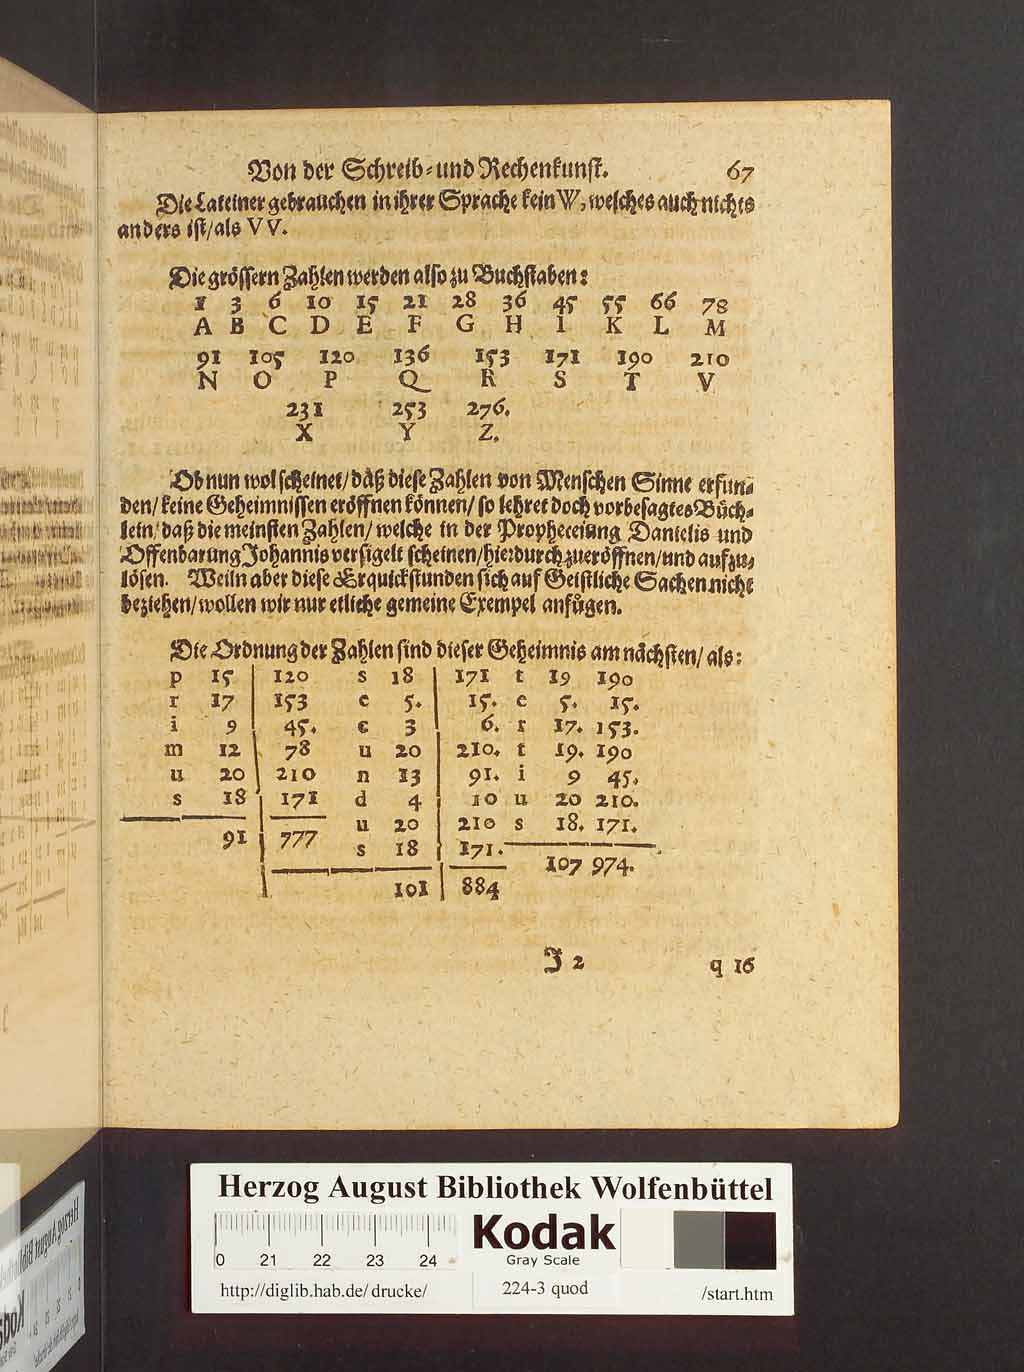 Von der Schreib- und Rechenkunst. 67
Die Lateiner gebrauchen in ihrer Sprache kein W, welches auch nichts
anders ist/als V V.
Die grössern Zahlen werden also zu Buchstaben:
1 3 6 10 15 21 28 36 45 55 66 78
A B C D E F G H I K L M
91 105 120 136 153 171 190 210
N O P Q R S T V
231 253 276.
X Y Z.
Ob nun wol scheinet/ daß diese Zahlen von Menschen Sinne erfun-
den/ keine Geheimnissen eröffnen können/ so lehret doch vorbesagtes Büch-
lein/ daß die meinsten Zahlen/ welche in der Propheceiung Danielis und
Offenbarung Johannis versigelt scheinen/hierdurch zueröffnen/und aufzu-
lösen. Weiln aber diese Erquickstunden sich auf Geistliche Sachen nicht
beziehen/wollen wir nur etliche gemeine Exempel anfügen.
Die Ordnung der Zahlen sind dieser Geheimnis am nächsten/ als:
p 15 120 s 18 171 t 19 190
r 17 153 e 5. 15. e 5. 15.
i 9 45. c 3 6. r 17. 153.
m 12 78 u 20 210. t 19. 190
u 20 210 n 13 91. i 9 45.
s 18 171 d 4 10 u 20 210.
u 20 210 s 18. 171.
91 777 s 18 171.
107 974.
101 884
J 2 q 16
Herzog August Bibliothek Wolfenbüttel
0 21 22 23 24
Kodak
Gray Scale
http://diglib.hab.de/ drucke/ 224-3 quod /start.htm